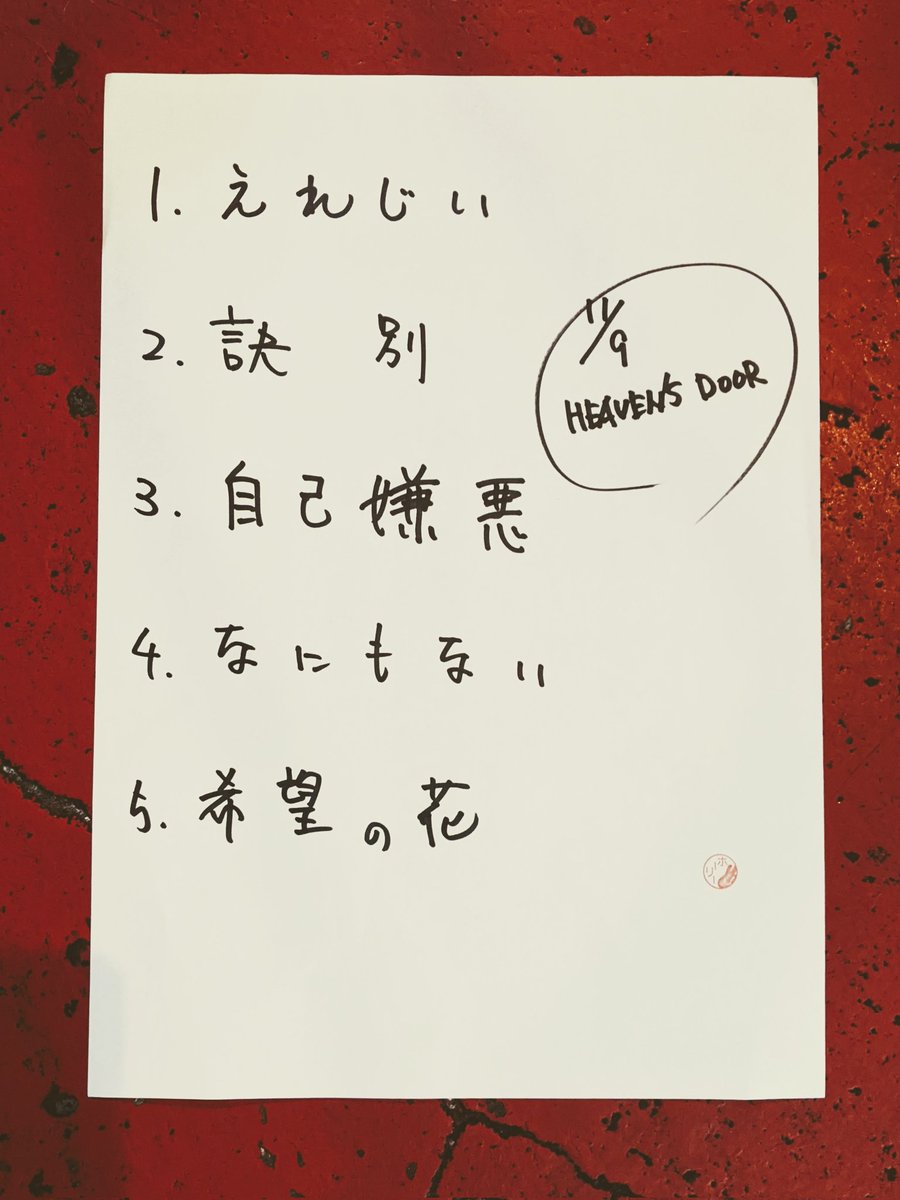 1. えれじい
2. 訣別
11/9
HEAVEN'S DOOR
3. 自己嫌悪
4. なにもない
5. 希望の花
ホーリー